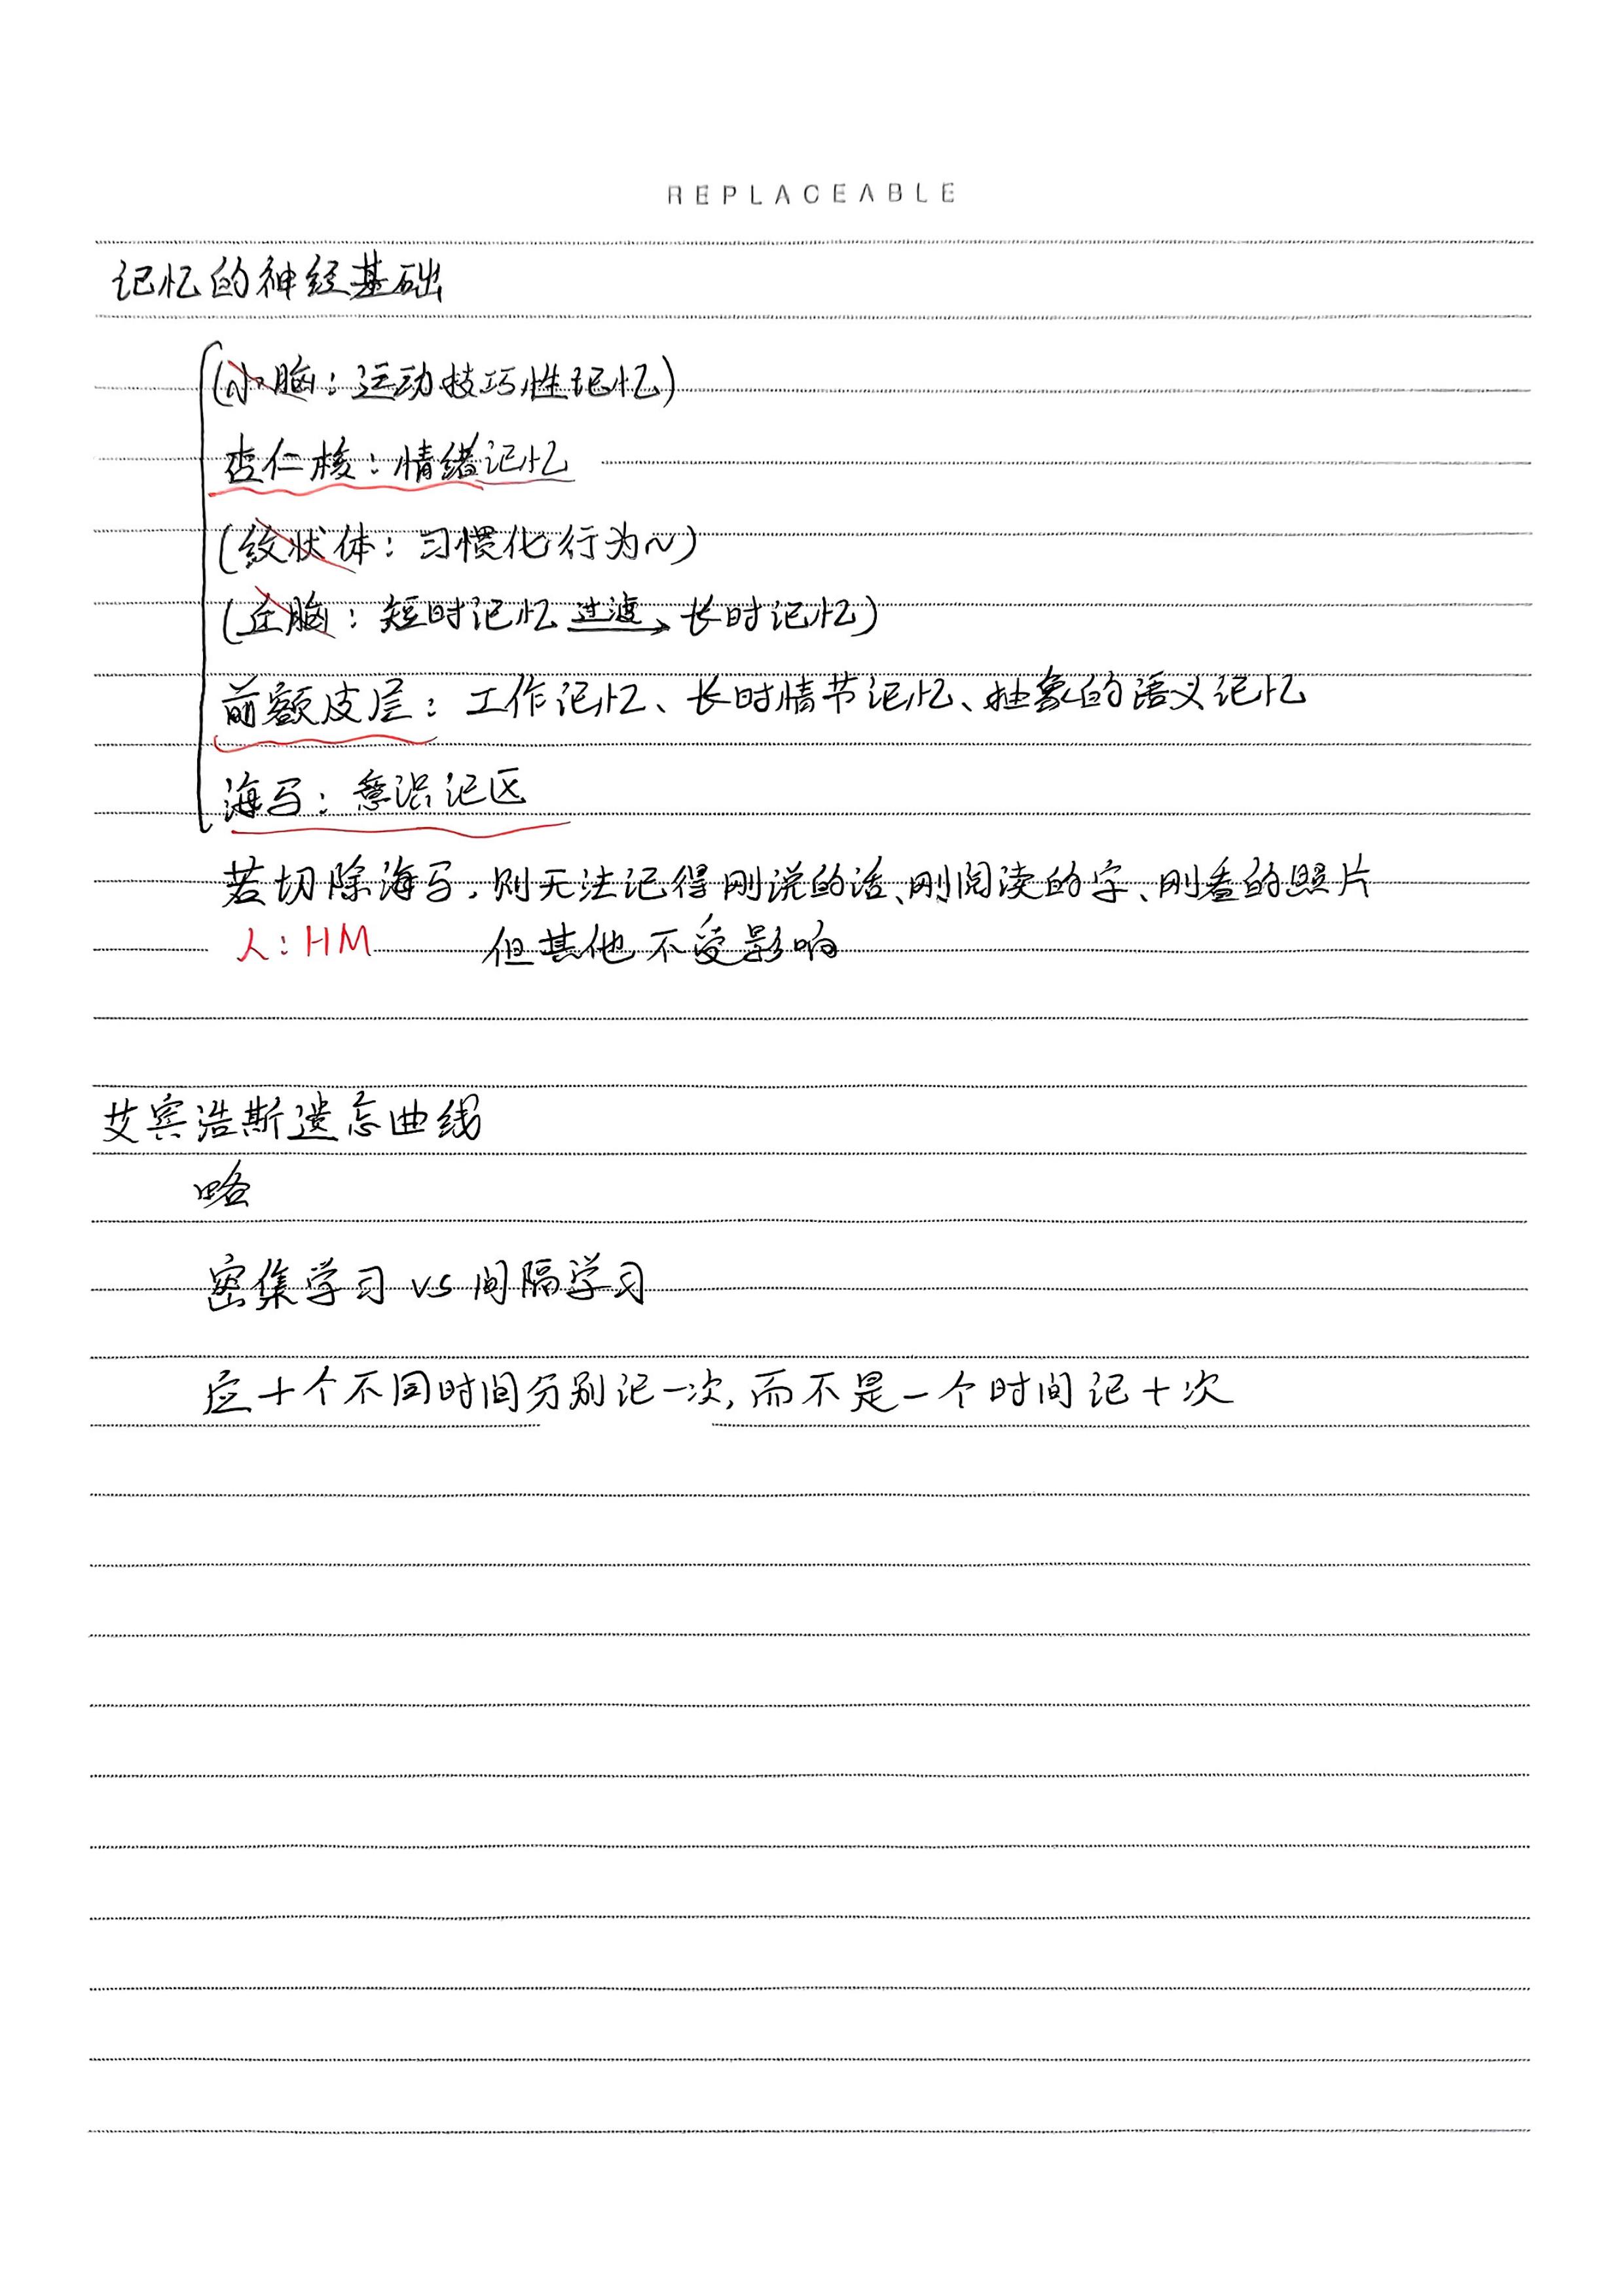 REPLACEABLE
记忆的神经基础
(小脑：运动技巧性记忆)
杏仁核：情绪记忆
(纹状体：习惯化行为~)
(左脑：短时记忆 过渡→ 长时记忆)
前额皮层：工作记忆、长时情节记忆、抽象的语义记忆
海马：意识记区
若切除海马，则无法记得刚说的话、刚阅读的字、刚看的照片
人：HM 但其他不受影响
艾宾浩斯遗忘曲线
略
密集学习 vs 间隔学习
应十个不同时间分别记一次，而不是一个时间记十次